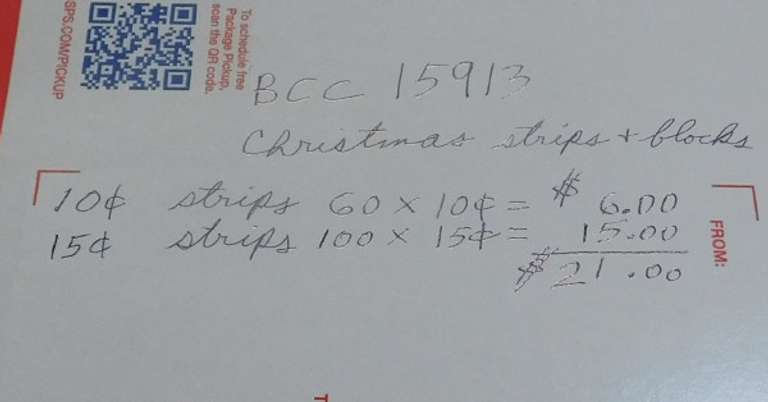 To schedule free
Package Pickup,
scan the QR code.
SPS.COM/PICKUP
BCC 15913
Christmas strips + blocks
10¢ strips 60 x 10¢ = $ 6.00
15¢ strips 100 x 15¢ = 15.00
$ 21.00
FROM:
T